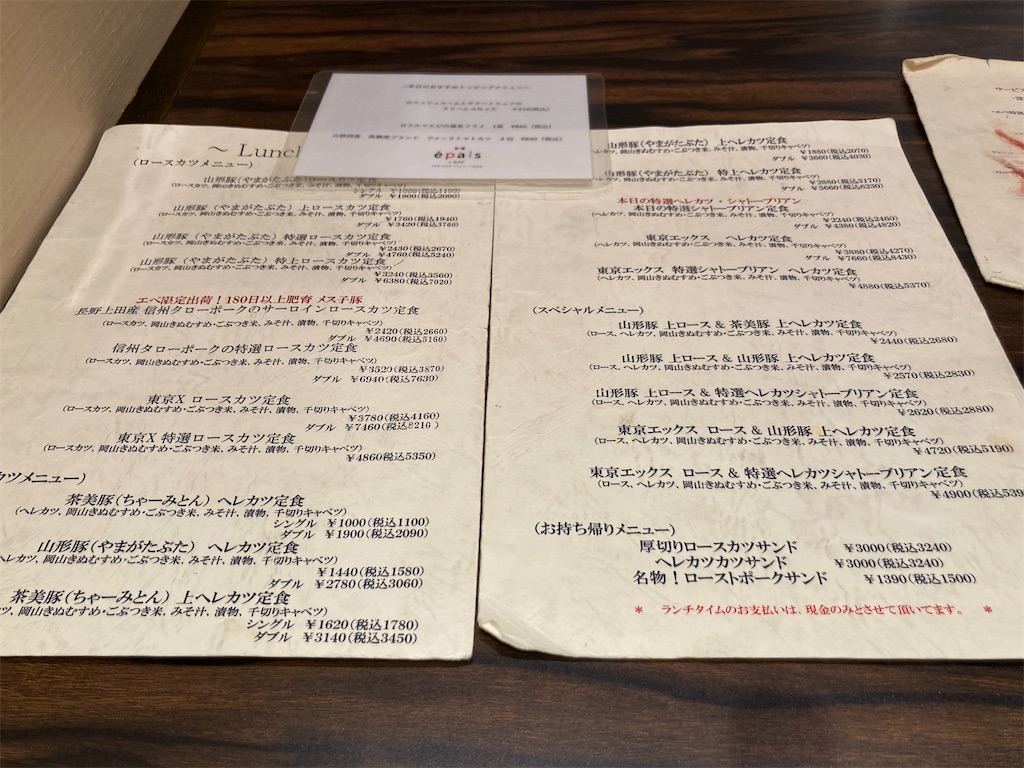 ~ Lunch
(ロースカツメニュー)
山形豚(やまがたぶた) ロースカツ定食
(ロースカツ、岡山きぬむすめ・こぶつき米、みそ汁、漬物、千切りキャベツ)
シングル ￥1000(税込1100)
ダブル ￥1900(税込2090)
山形豚(やまがたぶた) 上ロースカツ定食
(ロースカツ、岡山きぬむすめ・こぶつき米、みそ汁、漬物、千切りキャベツ)
￥1760(税込1940)
ダブル ￥3420(税込3760)
山形豚 (やまがたぶた) 特選ロースカツ定食
(ロースカツ、岡山きぬむすめ・こぶつき米、みそ汁、漬物、千切りキャベツ)
￥2430(税込2670)
ダブル ￥4760(税込5240)
山形豚 (やまがたぶた) 特上ロースカツ定食
(ロースカツ、岡山きぬむすめ・こぶつき米、みそ汁、漬物、千切りキャベツ)
￥3240(税込3560)
ダブル ￥6380(税込7020)
エペ限定出荷！180日以上肥育 メス子豚
長野上田産 信州タローポークのサーロインロースカツ定食
(ロースカツ、岡山きぬむすめ・こぶつき米、みそ汁、漬物、千切りキャベツ)
￥2420(税込2660)
ダブル ￥4690(税込5160)
信州タローポークの特選ロースカツ定食
(ロースカツ、岡山きぬむすめ・こぶつき米、みそ汁、漬物、千切りキャベツ)
￥3520(税込3870)
ダブル ￥6940(税込7630)
東京X ロースカツ定食
(ロースカツ、岡山きぬむすめ・こぶつき米、みそ汁、漬物、千切りキャベツ)
￥3780(税込4160)
ダブル ￥7460(税込8210)
東京X 特選ロースカツ定食
(ロースカツ、岡山きぬむすめ・こぶつき米、みそ汁、漬物、千切りキャベツ)
￥4860(税込5350)
カツメニュー)
茶美豚(ちゃーみとん) ヘレカツ定食
(ヘレカツ、岡山きぬむすめ・こぶつき米、みそ汁、漬物、千切りキャベツ)
シングル ￥1000(税込1100)
ダブル ￥1900(税込2090)
山形豚(やまがたぶた) ヘレカツ定食
ヘレカツ、岡山きぬむすめ・こぶつき米、みそ汁、漬物、千切りキャベツ)
￥1440(税込1580)
ダブル ￥2780(税込3060)
茶美豚(ちゃーみとん) 上ヘレカツ定食
ツ、岡山きぬむすめ・こぶつき米、みそ汁、漬物、千切りキャベツ)
シングル ￥1620(税込1780)
ダブル ￥3140(税込3450)
~本日のおすすめトッピングメニュー~
クリームコロッケ
épais
山形豚(やまがたぶた) 上ヘレカツ定食
ヘレカツ、岡山きぬむすめ・こぶつき米、みそ汁、漬物、千切りキャベツ)
￥1880(税込2070)
ダブル ￥3660(税込4030)
山形豚(やまがたぶた) 特上ヘレカツ定食
(ヘレカツ、岡山きぬむすめ・こぶつき米、みそ汁、漬物、千切りキャベツ)
￥2880(税込3170)
ダブル ￥5660(税込6230)
本日の特選ヘレカツ・シャトーブリアン
本日の特選シャトーブリアン定食
(ヘレカツ、岡山きぬむすめ・こぶつき米、みそ汁、漬物、千切りキャベツ)
￥2240(税込2460)
ダブル ￥4380(税込4820)
東京エックス ヘレカツ定食
(ヘレカツ、岡山きぬむすめ・こぶつき米、みそ汁、漬物、千切りキャベツ)
￥3880(税込4270)
ダブル ￥7660(税込8430)
東京エックス 特選シャトーブリアン ヘレカツ定食
(ヘレカツ、岡山きぬむすめ・こぶつき米、みそ汁、漬物、千切りキャベツ)
￥4880(税込5370)
(スペシャルメニュー)
山形豚 上ロース & 茶美豚 上ヘレカツ定食
(ロース、ヘレカツ、岡山きぬむすめ・こぶつき米、みそ汁、漬物、千切りキャベツ)
￥2440(税込2680)
山形豚 上ロース & 山形豚 上ヘレカツ定食
(ロース、ヘレカツ、岡山きぬむすめ・こぶつき米、みそ汁、漬物、千切りキャベツ)
￥2570(税込2830)
山形豚 上ロース & 特選ヘレカツシャトーブリアン定食
(ロース、ヘレカツ、岡山きぬむすめ・こぶつき米、みそ汁、漬物、千切りキャベツ)
￥2620(税込2880)
東京エックス ロース & 山形豚 上ヘレカツ定食
(ロース、ヘレカツ、岡山きぬむすめ・こぶつき米、みそ汁、漬物、千切りキャベツ)
￥4720(税込5190)
東京エックス ロース & 特選ヘレカツシャトーブリアン定食
(ロース、ヘレカツ、岡山きぬむすめ・こぶつき米、みそ汁、漬物、千切りキャベツ)
￥4900(税込539
(お持ち帰りメニュー)
厚切りロースカツサンド ￥3000(税込3240)
ヘレカツカツサンド ￥3000(税込3240)
名物！ローストポークサンド ￥1390(税込1500)
* ランチタイムのお支払いは、現金のみとさせて頂いてます。 *
サービス